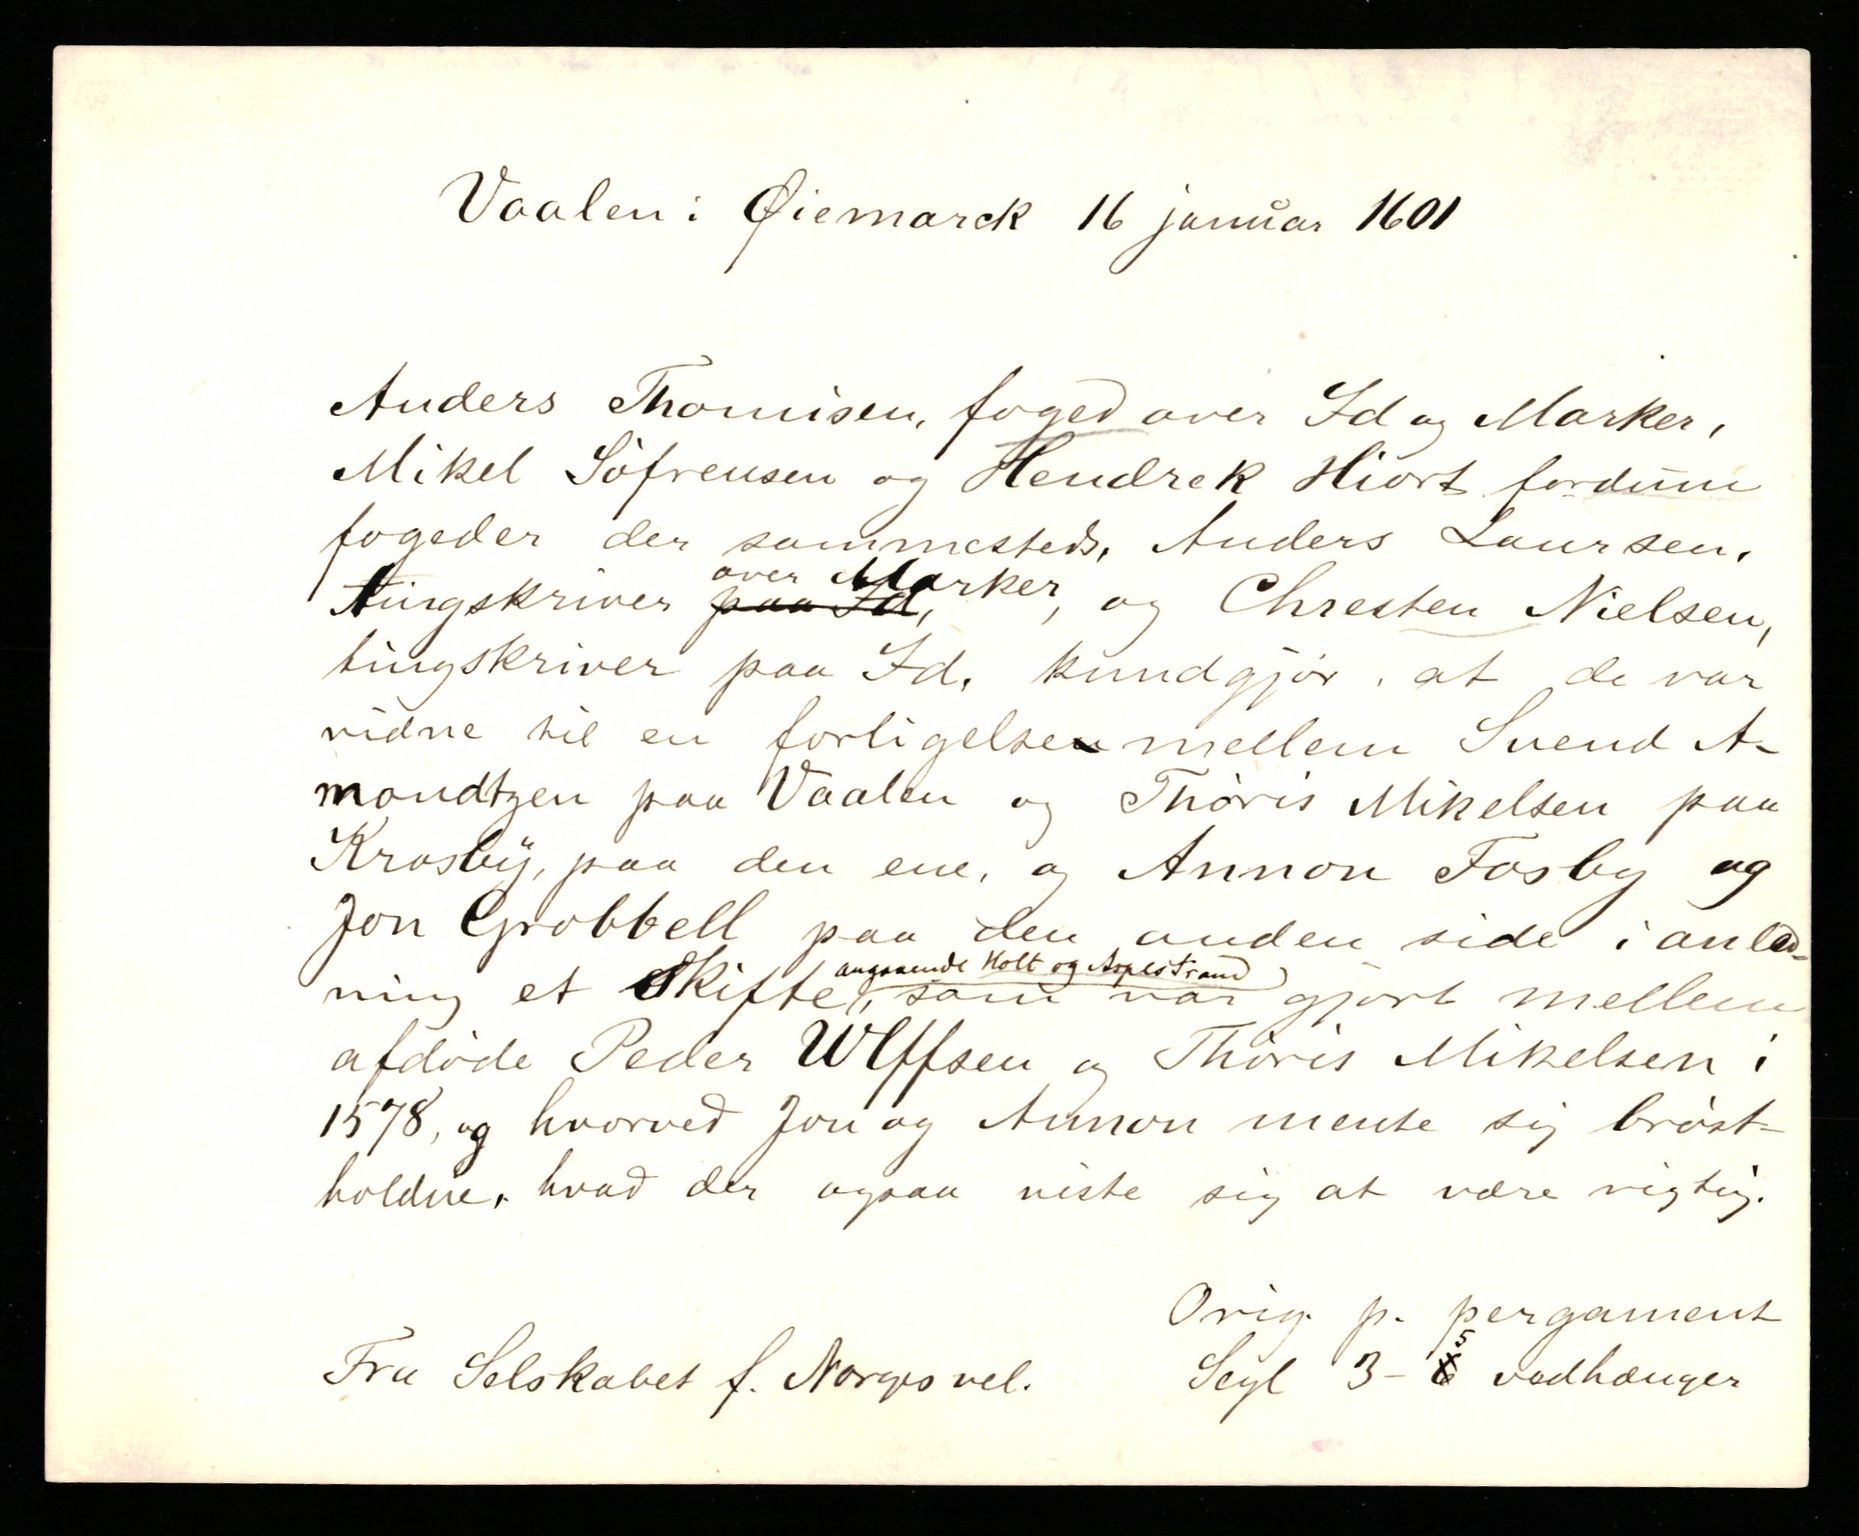 Vaalen i Øiemarck 16 januar 1601
Anders Thomisen, foged over Id og Marker,
Mikel Söfrensen og Hendrek Hiort fordum
fogeder der sammesteds, Anders Laursen,
over Marker
tingskriver paa Id, , og Chresten Nielsen,
tingskriver paa Id, kundgjør, at de var
vidne til en forligelse mellem Svend A-
mondtzen paa Vaalen og Thöris Mikelsen paa
Krosbÿ, paa den ene, og Annon Fosby og
Jon Grobbell paa den anden side i anled-
angaaende Holt og Aspestrand
ning et Skifte, som var gjort mellem
afdöde Peder Wlffsen og Thöris Mikelsen i
1578, og hvorved Jon og Annon mente sig bröst-
holdne, hvad der ogsaa viste sig at være rigtig.
Orig. p. pergament
5
Fra Selskabet f. Norges vel. Segl 3-6 vedhænger